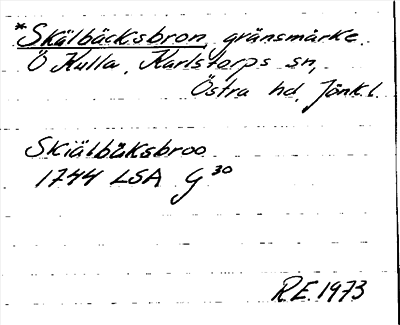 *Skälbäcksbron, gränsmärke.
Ö Kulla, Karlstorps sn,
Östra hd, Jönk.l.
Skiälbäksbroo
1744 LSA G 30
R.E. 1973